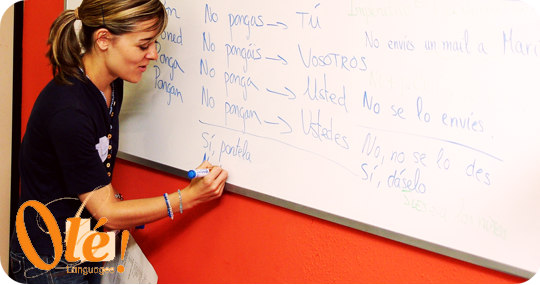 oned
Ponga
Pongan
No pongas → TÚ
No pongáis → VOSOTROS
No ponga → Usted
No pongan → Ustedes
Sí, pontela
No envíes un mail a Mari
No se lo envíes.
No, no se lo des
Sí, dáselo
Olé!
Languages